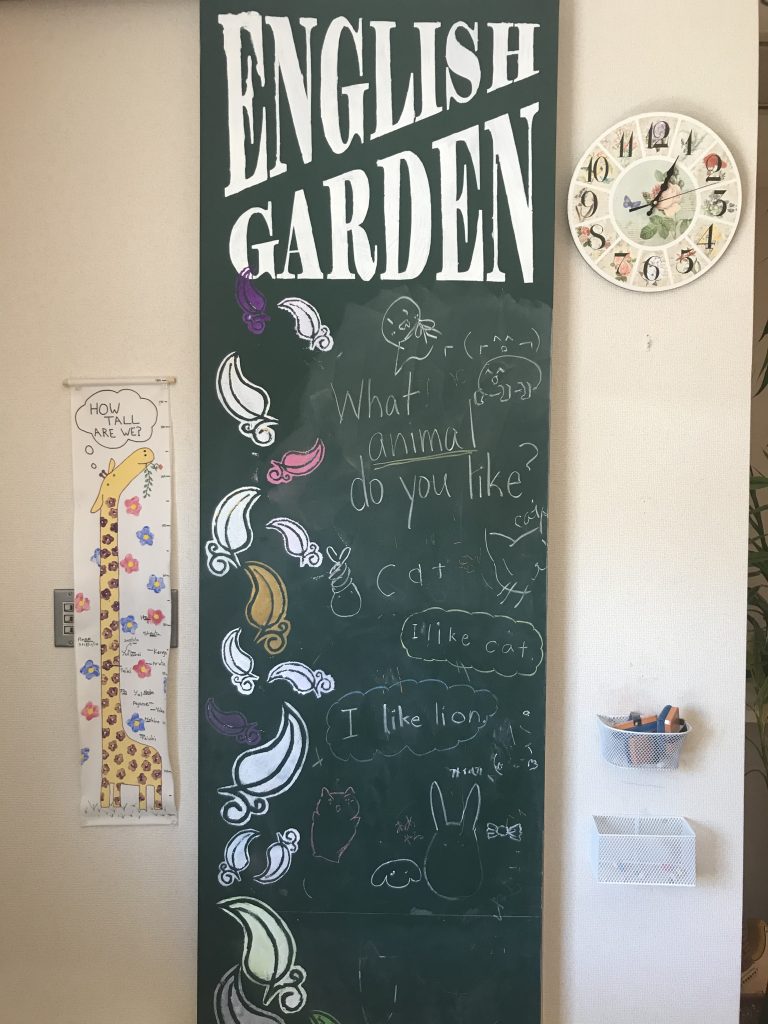 ENGLISH
GARDEN
What
animal
do you like?
cat
I like cat.
I like lion.
HOW
TALL
ARE WE?
12
1
2
3
4
5
6
7
8
9
10
11